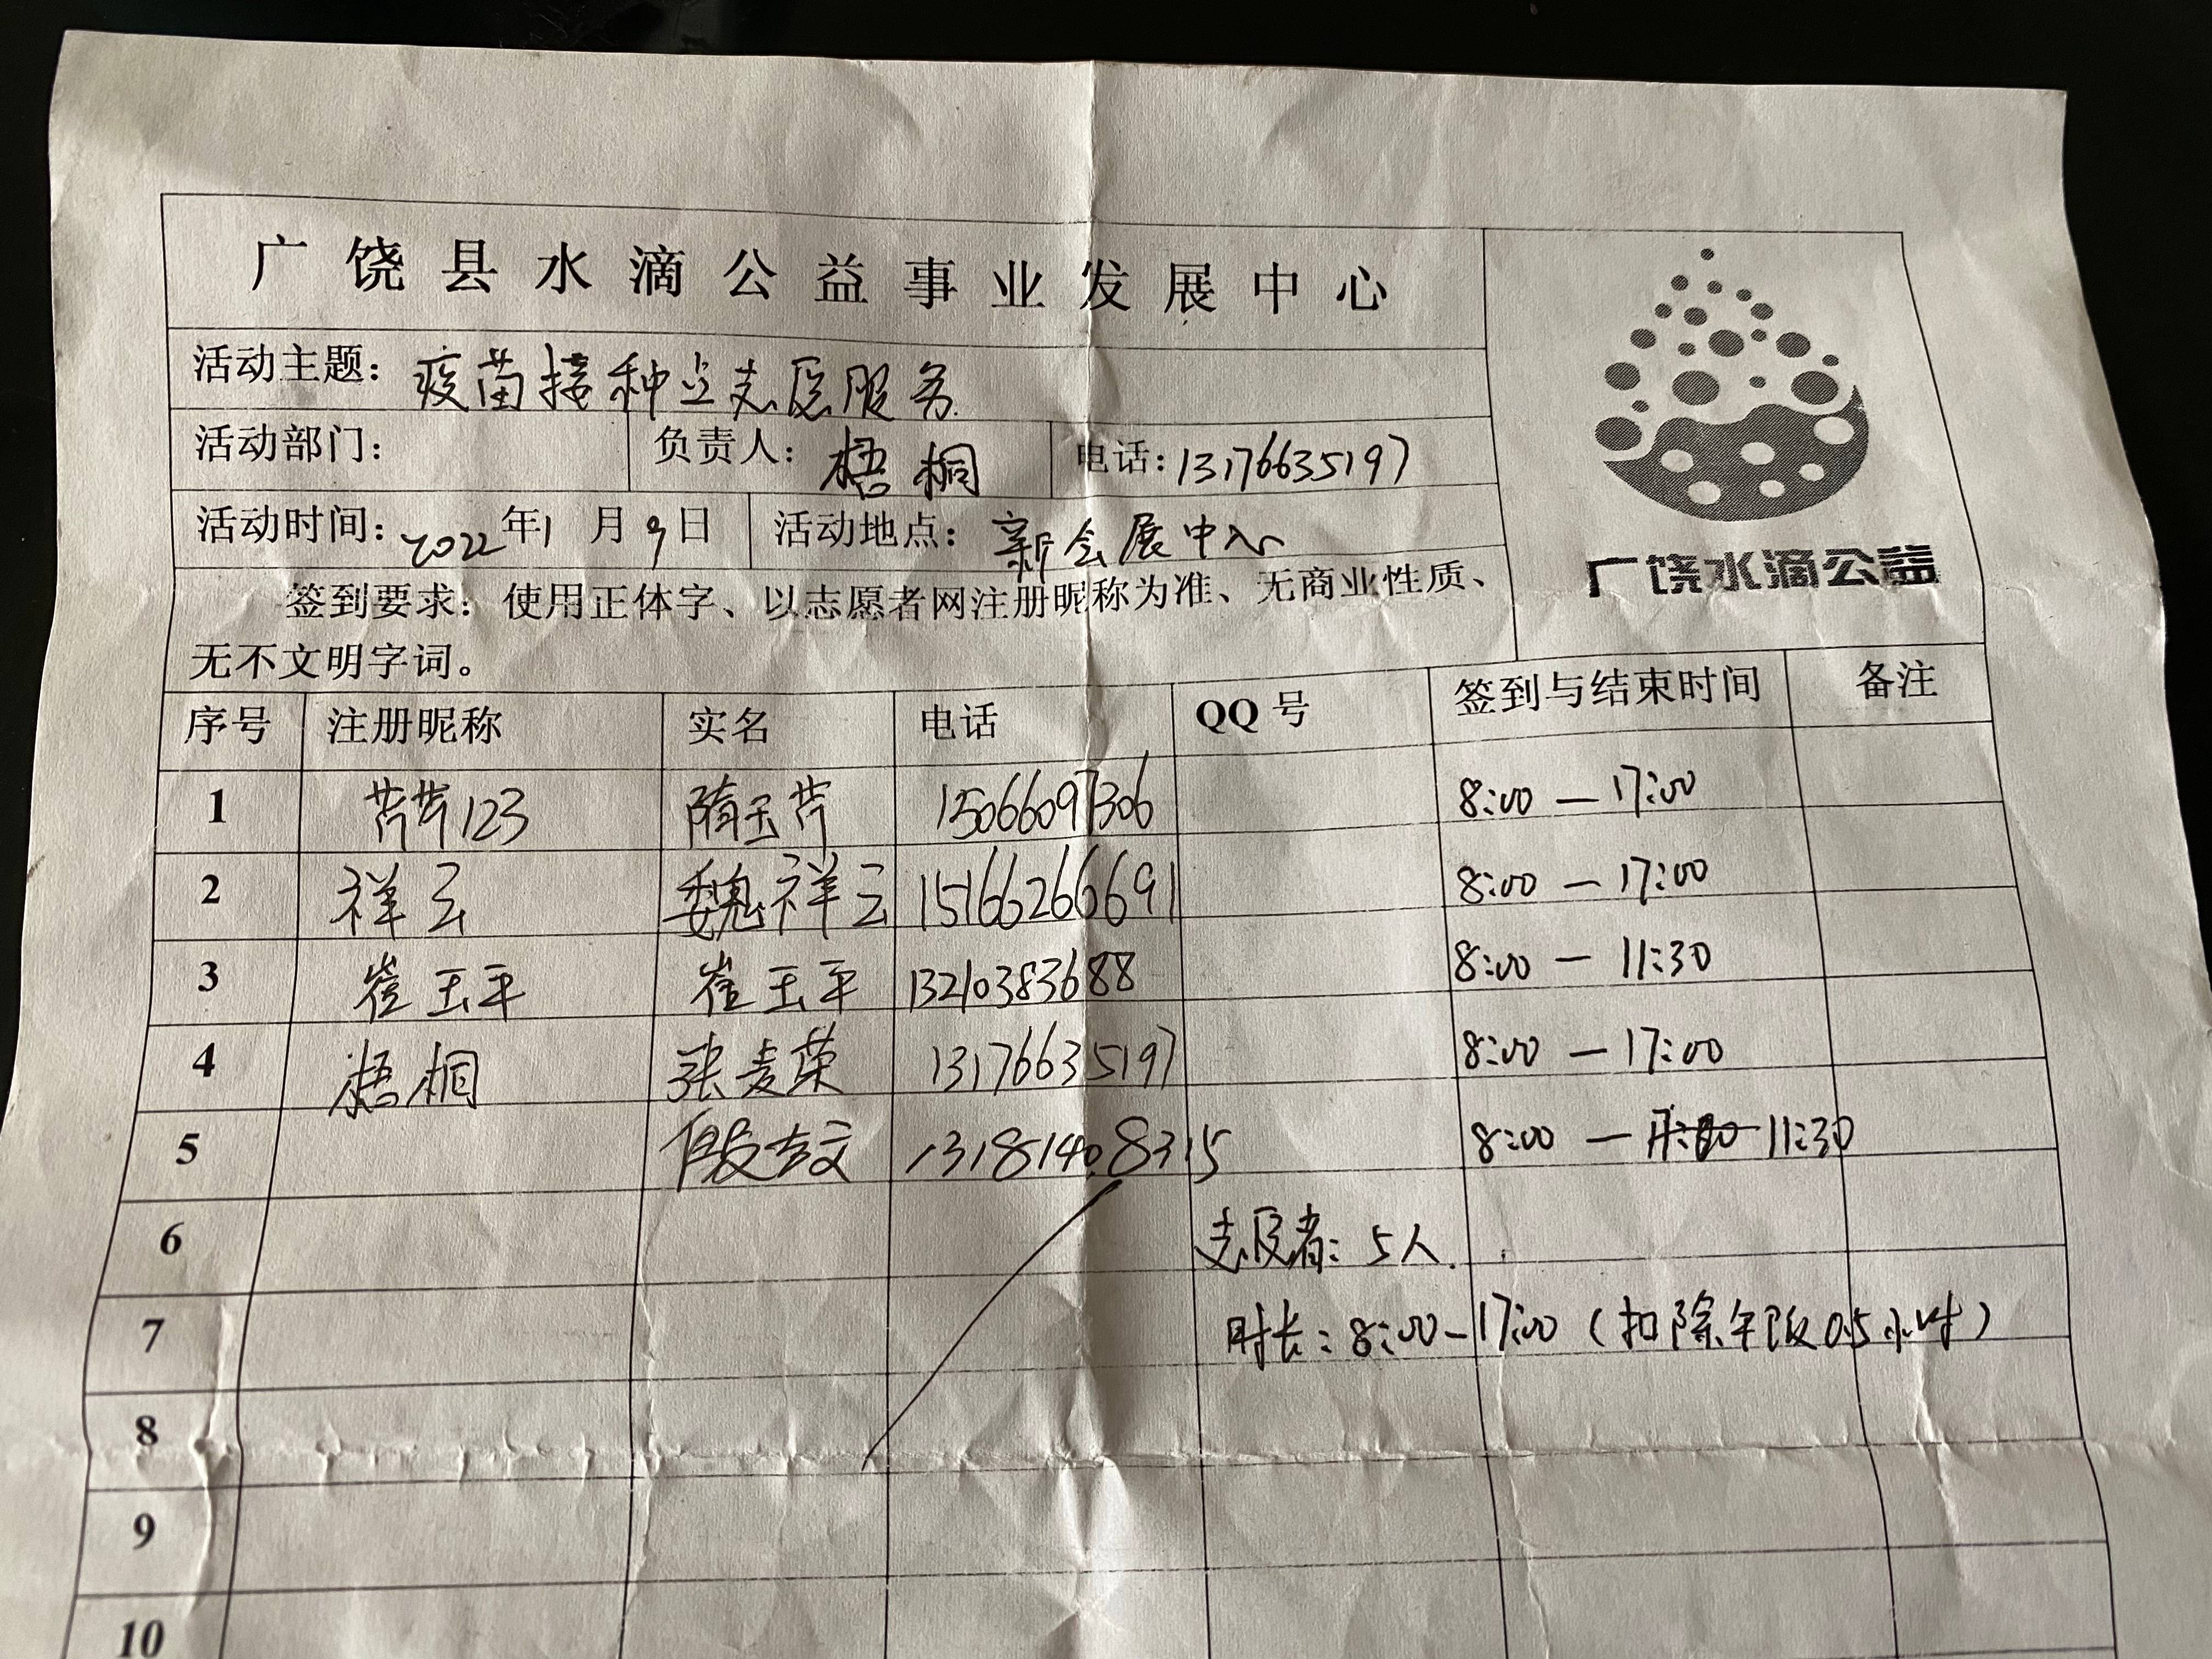 广饶县水滴公益事业发展中心
活动主题：疫苗接种点志愿服务
活动部门： 负责人：梧桐 电话：13176635197
活动时间：2022年1月9日 活动地点：新会展中心
广饶水滴公益
签到要求：使用正体字、以志愿者网注册昵称为准、无商业性质、
无不文明字词。
序号 注册昵称 实名 电话 QQ号 签到与结束时间 备注
1 芹芹123 隋玉芹 15066097306 8:00—17:00
2 祥云 魏祥云 15166266691 8:00—17:00
3 崔玉平 崔玉平 13210383688 8:00—11:30
4 梧桐 张麦荣 13176635197 8:00—17:00
5 殷志文 13181408315 8:00—11:30
6 志愿者：5人.
7 时长：8:00-17:00（扣除午饭0.5小时）
8
9
10